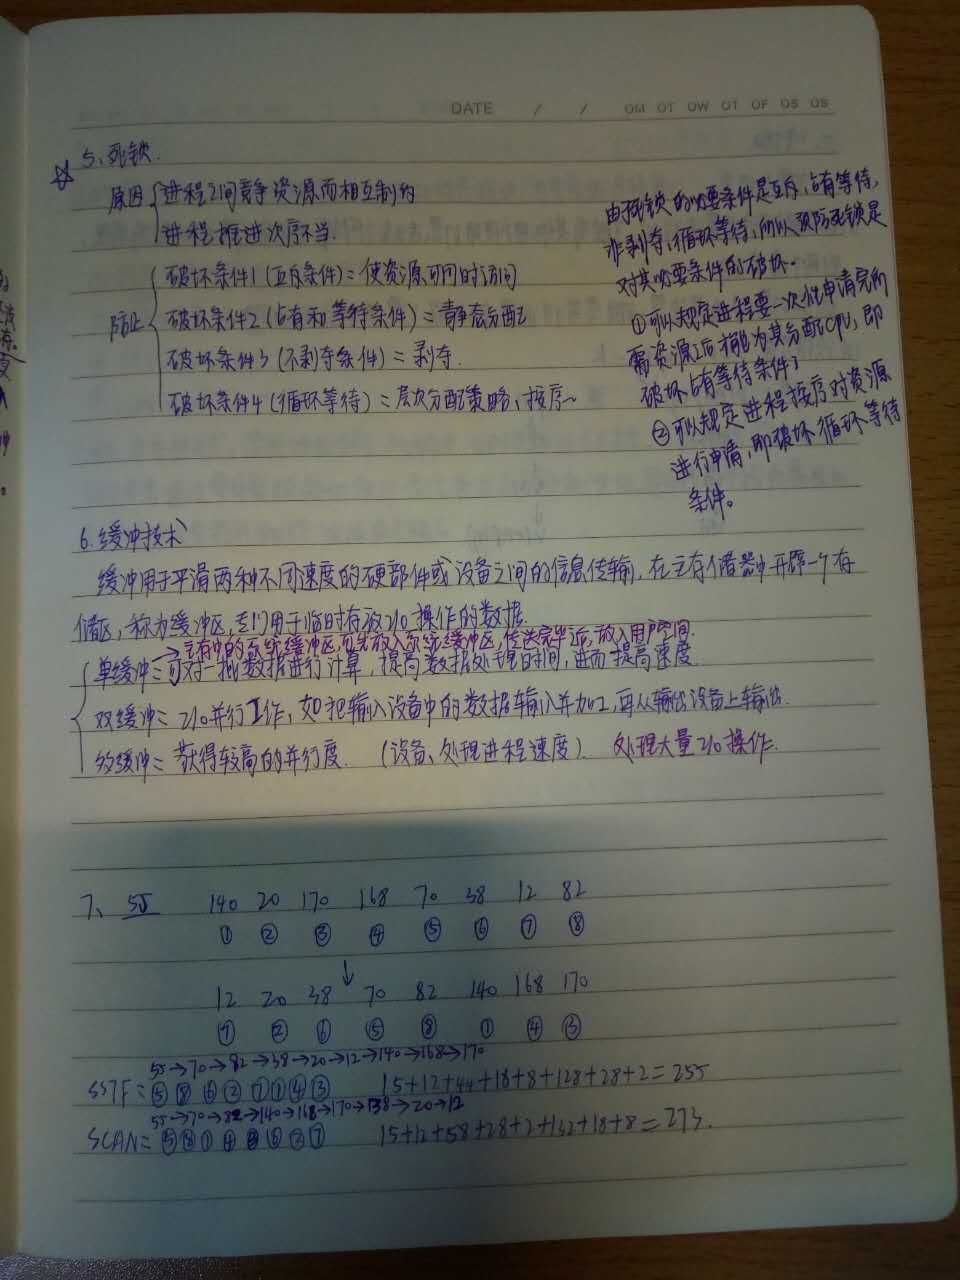 DATE / / OM OT OW OT OF OS OS
☆ 5、死锁.
原因 { 进程之间竞争资源而相互制约
进程推进次序不当.
防止 { 破坏条件1 (互斥条件) = 使资源可同时访问
破坏条件2 (占有和等待条件) = 静态分配
破坏条件3 (不剥夺条件) = 剥夺.
破坏条件4 (循环等待) = 层次分配策略、按序~
由于死锁的必要条件是互斥,占有等待,
非剥夺,循环等待,所以预防死锁是
对其必要条件的破坏.
① 可以规定进程要一次性申请完所
需资源之后才能为其分配CPU, 即
破坏占有等待条件;
② 可以规定进程按序对资源
进行申请,即破坏循环等待
条件。
6.缓冲技术
缓冲用于平滑两种不同速度的硬部件或设备之间的信息传输, 在主存储器中开辟一个存
储区, 称为缓冲区, 专门用于临时存放I/O操作的数据.
→主存中的系统缓冲区,可先放入系统缓冲区,传送完毕后,放入用户空间.
{ 单缓冲= 可对一批数据进行计算, 提高数据处理时间, 进而提高速度.
双缓冲= I/O并行工作, 如把输入设备中的数据输入并加工, 再从输出设备上输出.
多缓冲= 获得较高的并行度. (设备、处理进程速度). 处理大量I/O操作.
7、 55 140 20 170 168 70 38 12 82
① ② ③ ④ ⑤ ⑥ ⑦ ⑧
↓
12 20 38 70 82 140 168 170
⑦ ② ⑥ ⑤ ⑧ ① ④ ③
55→70→82→38→20→12→140→168→170
SSTF= ⑤ ⑧ ⑥ ② ⑦ ① ④ ③ 15+12+44+18+8+128+28+2=255
55→70→82→140→168→170→38→20→12
SCAN= ⑤ ⑧ ① ④ ③ ⑥ ② ⑦ 15+12+58+28+2+132+18+8=273.